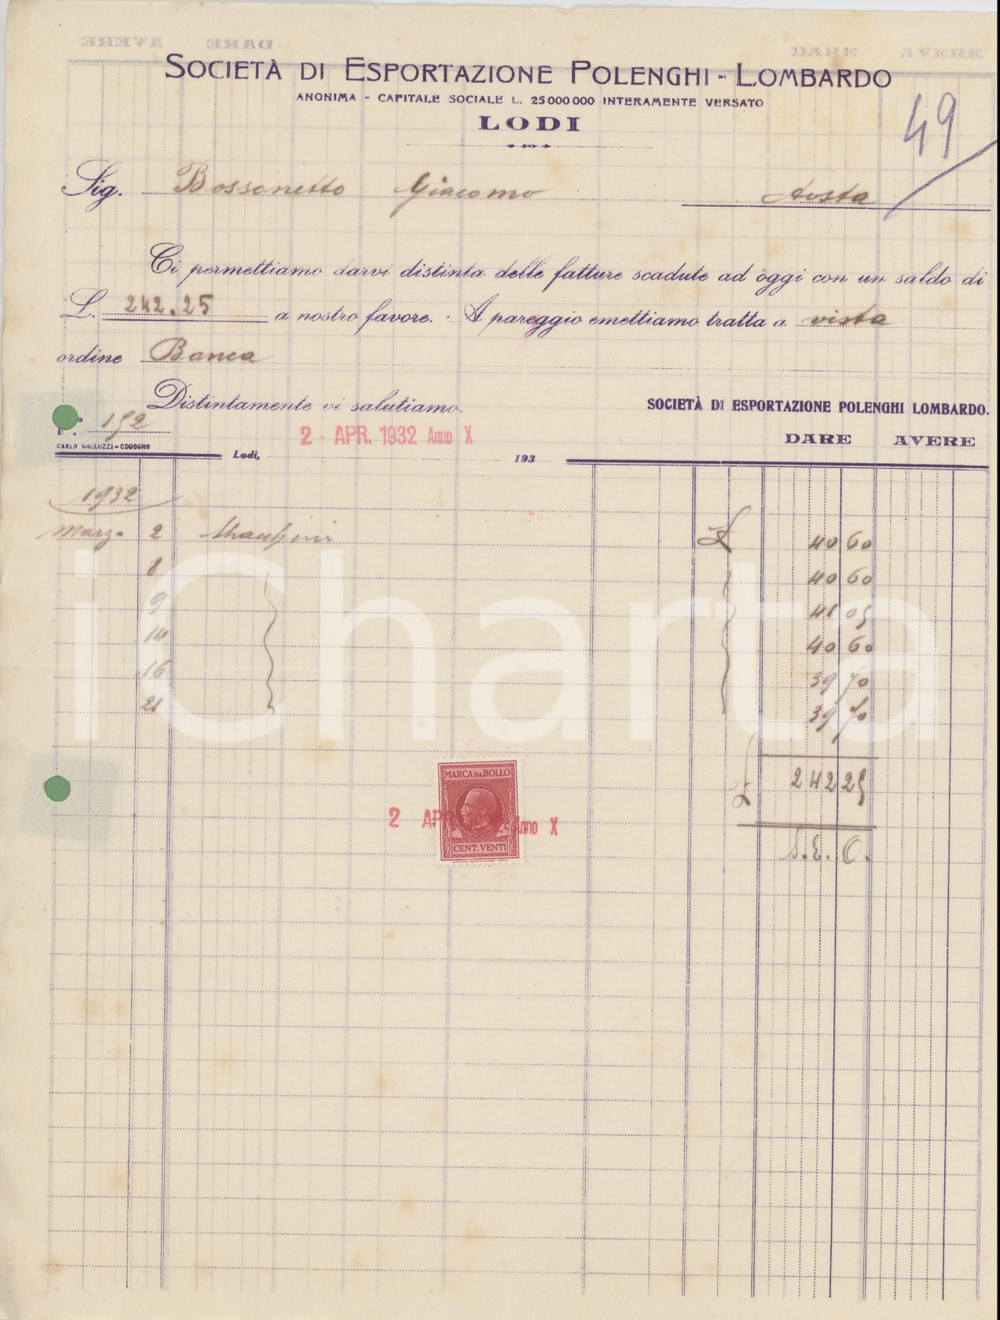 SOCIETÀ DI ESPORTAZIONE POLENGHI - LOMBARDO
ANONIMA - CAPITALE SOCIALE L. 25000000 INTERAMENTE VERSATO
LODI
49
Sig. Bossonetto Giacomo Aosta
Ci permettiamo darvi distinta delle fatture scadute ad oggi con un saldo di
L. 242.25 a nostro favore. - A pareggio emettiamo tratta a vista
ordine Banca
Distintamente vi salutiamo.
SOCIETÀ DI ESPORTAZIONE POLENGHI LOMBARDO.
192
CARLO GALLUZZI - CODOGNO
2 - APR. 1932 Anno X
Lodi, 193
DARE AVERE
1932
Marzo 2 £ 40 60
8 40 60
9 41 05
14 40 60
16 39 70
21 39 70
£ 242 25
S. E. O.
MARCA DA BOLLO
CENT. VENTI
2 APR. Anno X
iCharta